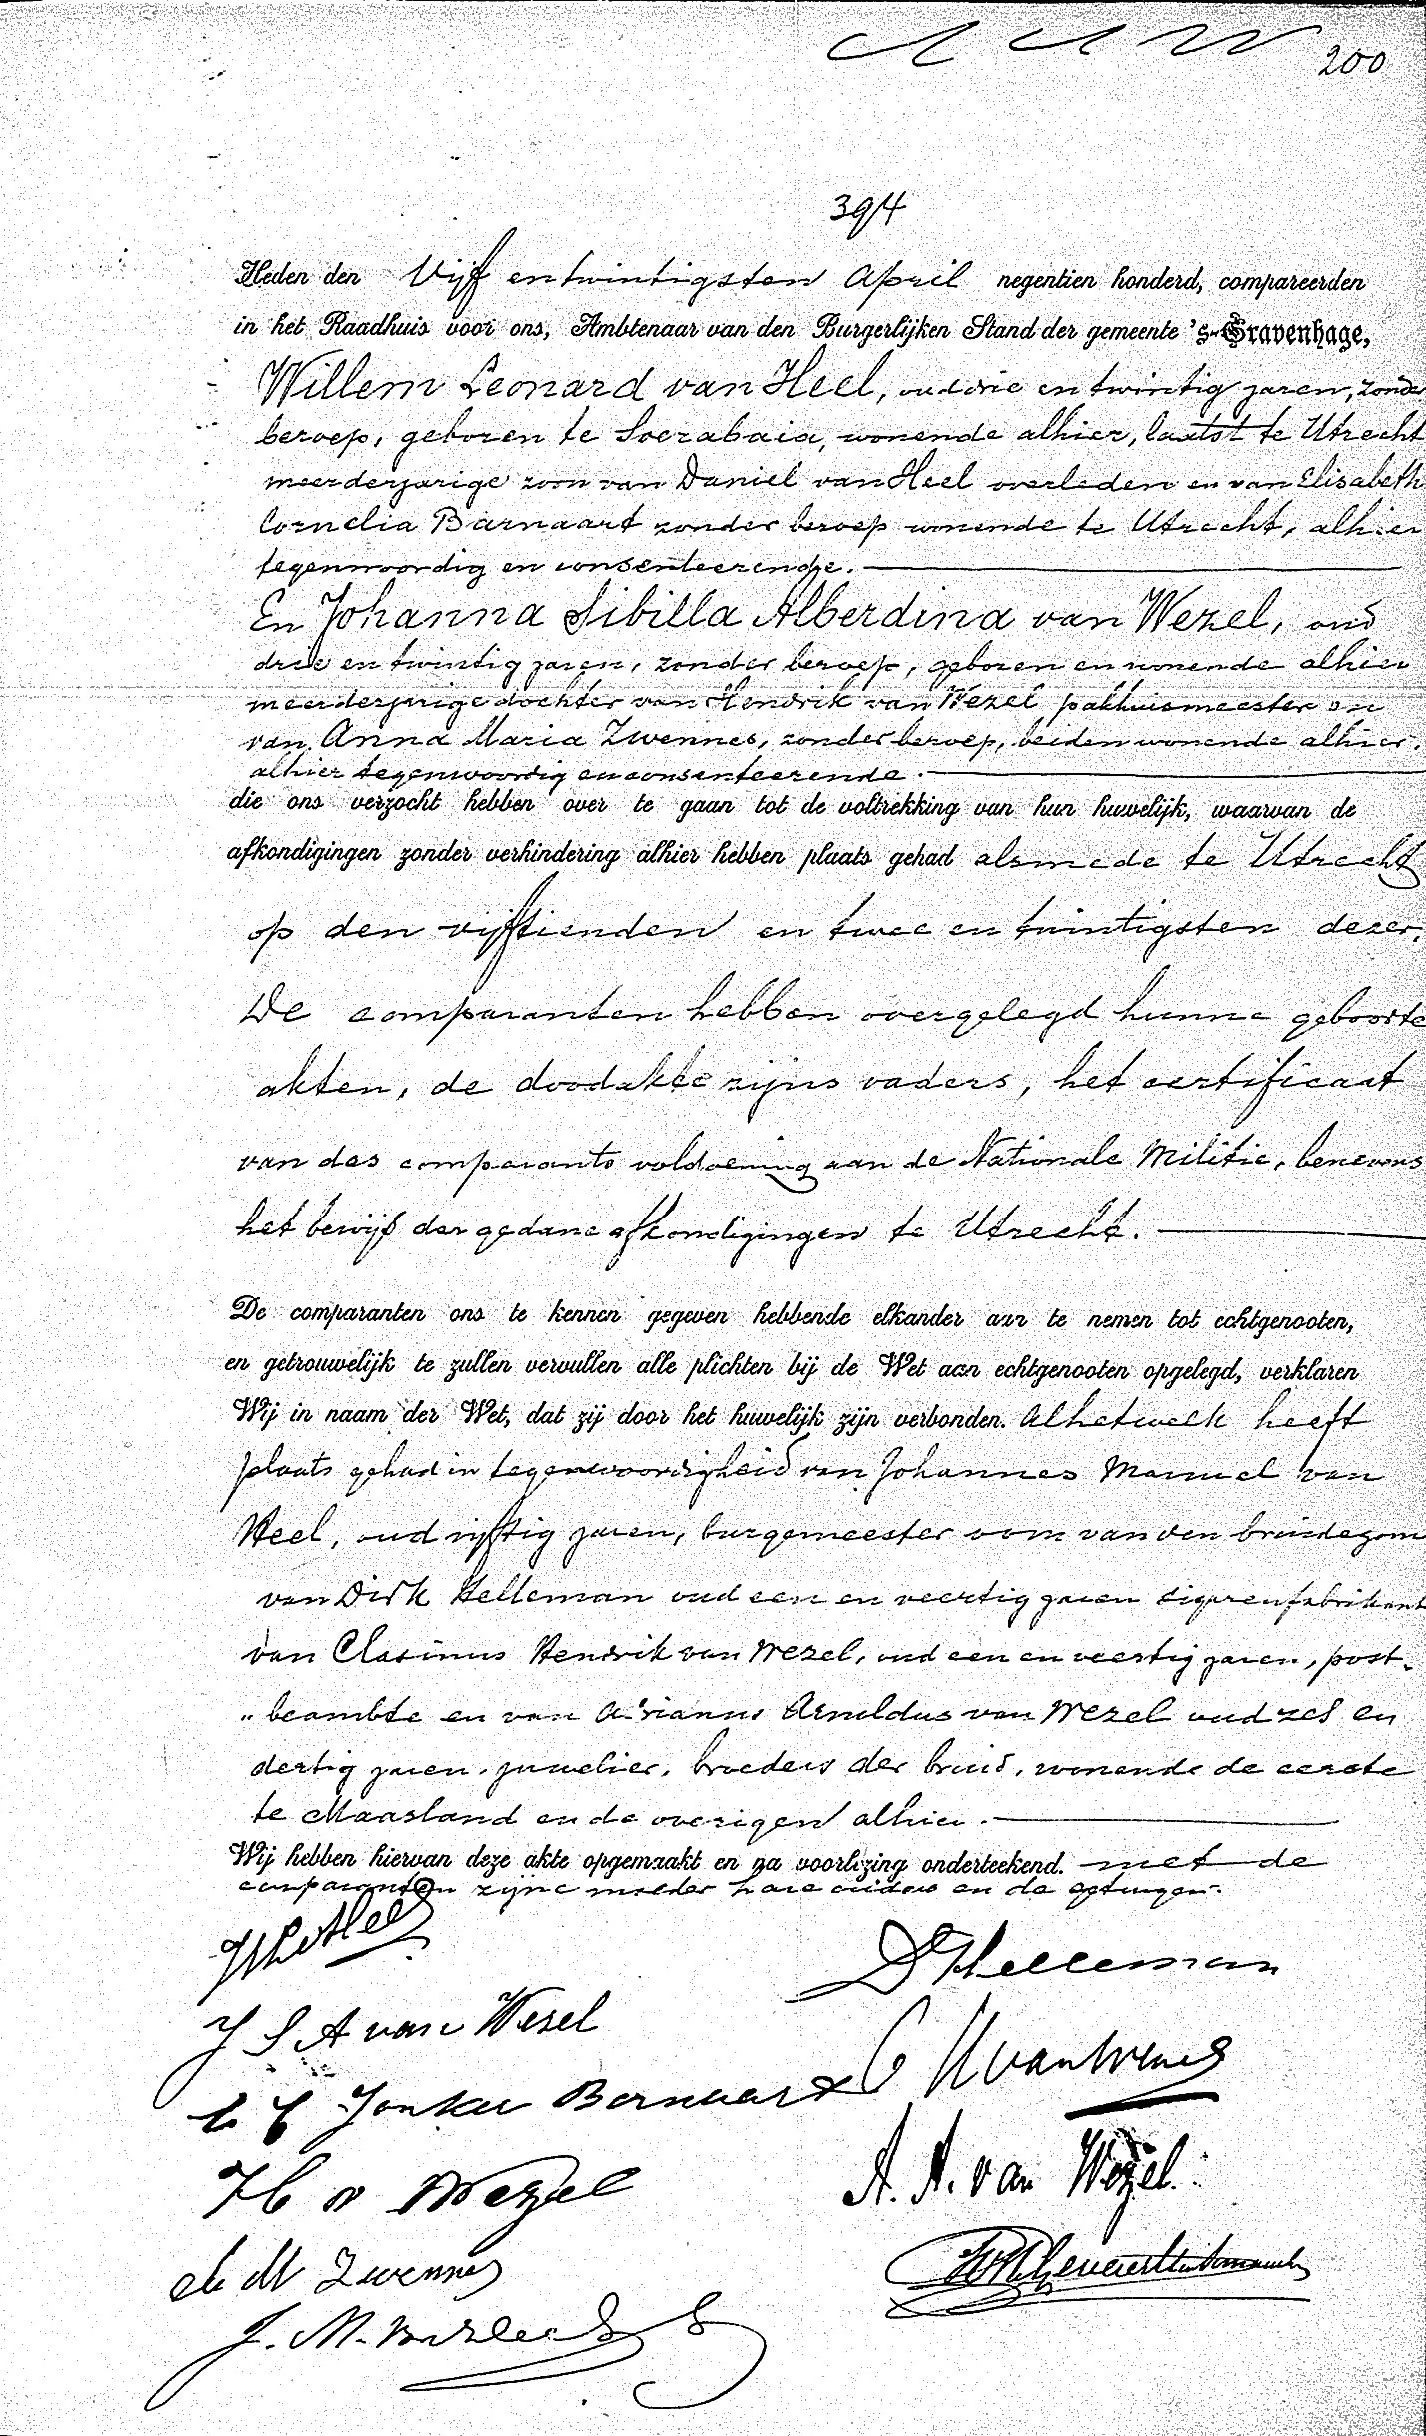 200
394
Heden den Vijf en twintigsten April negentien honderd, compareerden
in het Raadhuis voor ons, Ambtenaar van den Burgerlijken Stand der gemeente 's-Gravenhage,
Willem Leonard van Heel, oud drie en twintig jaren, zonder
beroep, geboren te Soerabaia, wonende alhier, laatst te Utrecht
meerderjarige zoon van Daniel van Heel overleden en van Elisabeth
Cornelia Barnaart zonder beroep wonende te Utrecht, alhier
tegenwoordig en consenteerende.
En Johanna Sibilla Alberdina van Wezel, oud
drie en twintig jaren, zonder beroep, geboren en wonende alhier
meerderjarige dochter van Hendrik van Wezel pakhuismeester en
van Anna Maria Zwennes, zonder beroep, beiden wonende alhier,
alhier tegenwoordig en consenteerende.
die ons verzocht hebben over te gaan tot de voltrekking van hun huwelijk, waarvan de
afkondigingen zonder verhindering alhier hebben plaats gehad alsmede te Utrecht
op den vijftienden en twee en twintigsten dezer.
De comparanten hebben overgelegd hunne geboorte
akten, de doodakte zijns vaders, het certificaat
van des comparants voldoening aan de Nationale Militie, benevens
het bewijs der gedane afkondigingen te Utrecht.
De comparanten ons te kennen gegeven hebbende elkander aan te nemen tot echtgenooten,
en getrouwelijk te zullen vervullen alle plichten bij de Wet aan echtgenooten opgelegd, verklaren
Wij in naam der Wet, dat zij door het huwelijk zijn verbonden. Alhetwelk heeft
plaats gehad in tegenwoordigheid van Johannes Manuel van
Heel, oud vijftig jaren, burgemeester oom van den bruidegom
van Dirk Helleman oud een en veertig jaren sigarenfabrikant
van Clasinus Hendrik van Wezel, oud een en veertig jaren, post-
" beambte en van Adrianus Arnoldus van Wezel oud zes en
dertig jaren, juwelier, broeders der bruid, wonende de eerste
te Maasland en de overigen alhier.
Wij hebben hiervan deze akte opgemaakt en na voorlezing onderteekend. met de
comparanten zijne moeder hare ouders en de getuigen.
D Helleman
J S A van Wezel
C H van Wezel
E C Jonker Barnaart
A. A. van Wezel.
H v Wezel
A M Zwennes
J. M. van Heel